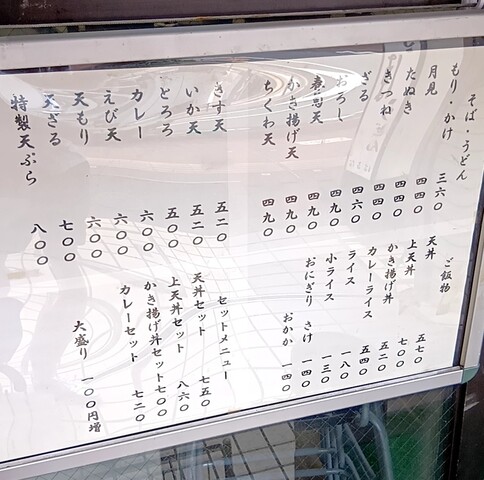 そば・うどん
もり・かけ 三六〇
月見 四四〇
たぬき 四四〇
きつね 四四〇
ざる 四六〇
おろし 四九〇
春菊天 四九〇
かき揚げ天 四九〇
ちくわ天 四九〇
きす天 五二〇
いか天 五二〇
とろろ 五〇〇
カレー 六〇〇
えび天 六〇〇
天もり 六〇〇
天ざる 七〇〇
特製天ぷら 八〇〇
ご飯物
天丼 五七〇
上天丼 七〇〇
かき揚げ丼 五二〇
カレーライス 五四〇
ライス 一八〇
小ライス 一三〇
おにぎり さけ 一四〇
おかか 一四〇
セットメニュー
天丼セット 七五〇
上天丼セット 八六〇
かき揚げ丼セット七〇〇
カレーセット 七二〇
大盛り 一〇〇円増